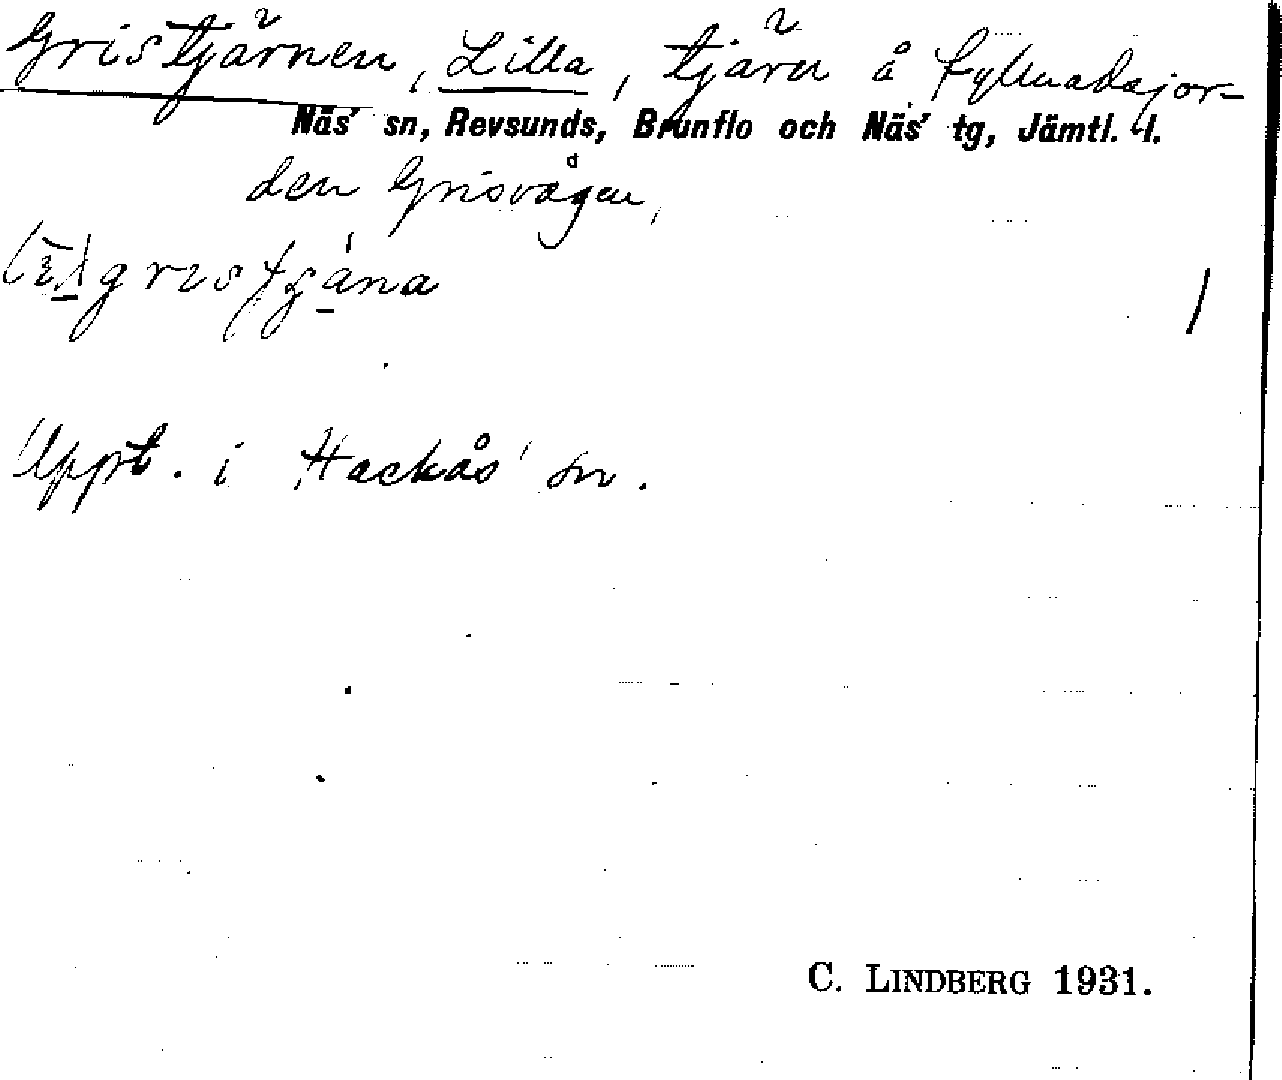 Gristjärnen, Lilla, tjärn å fyllnadsjor-
Näs' sn, Revsunds, Brunflo och Näs' tg, Jämtl. l.
den Grisvågen,
Uppt. i Hackås' sn.
C. LINDBERG 1931.